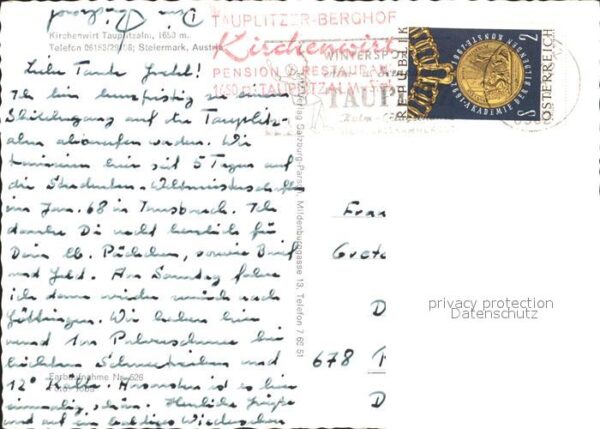 Dein
TAUPLITZER-BERGHOF
Kirchenwirt
PENSION RESTAURANT
1650 m TAUPLITZALM
Kirchenwirt Tauplitzalm, 1650 m.
Telefon 06153/29/08; Steiermark, Austria
WINTERSP
TAUPL
REPUBLIK ÖSTERREICH
AKADEMIE DER BILDENDEN KÜNSTE
S 2
Liebe Tante Gretel!
Ich bin kurzfristig zu einem
Skilehrgang auf die Tauplitz-
alm abberufen worden. Wir
trainieren hier seit 5 Tagen auf
die Studenten-Weltmeisterschaften
im Jan. 68 in Innsbruck. Ich
danke Dir recht herzlich für
Dein lb. Päckchen, sowie Brief
und Geld. Am Samstag fahre
ich dann wieder zurück nach
Göttingen. Wir haben hier
rund 1m Pulverschnee bei
leichtem Schneetreiben und
12° Kälte. Ansonsten ist es hier
einmalig schön. Herzliche Grüße
und auf ein baldiges Wiedersehen
Farbaufnahme Nr. 626
Verlag Salzburg-Parsch, Mildenburggasse 13, Telefon 7 63 51
Frau
Grete
D
678 T
D
privacy protection
Datenschutz